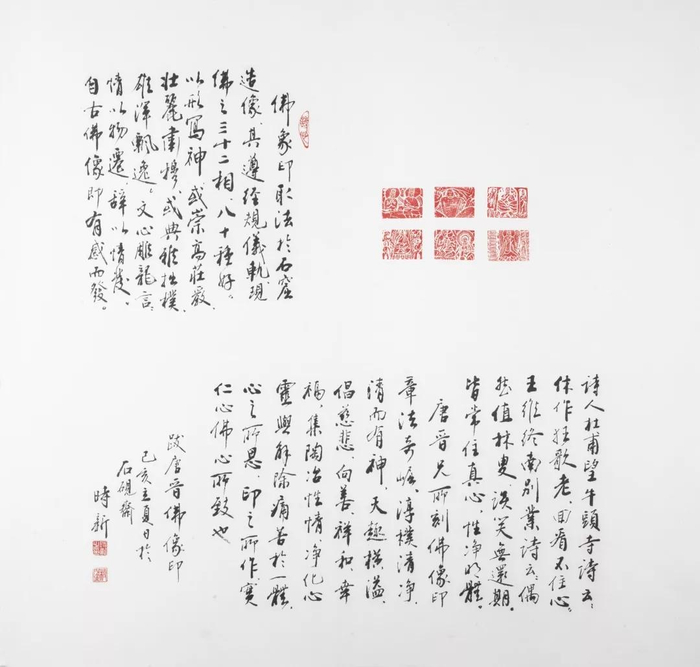 佛象印取法於石窟
造像其遵经規儀軌現
佛之三十二相八十種好
以形寫神或崇高莊嚴
壮麗肅穆或典雅拙樸
雄渾飄逸文心雕龍言
情以物遷辞以情發
自古佛像印有感而發
詩人杜甫望牛頭寺詩云
休作狂歌老回看不住心
王维终南别業詩云偶
然值林叟谈笑無還期
皆常住真心性净明體
唐晋兄所刻佛像印
章法奇崛淳樸清净
清而有神天趣横溢
倡慈悲向善祥和幸
福集陶冶性情净化心
靈與解除痛苦於一體
心之所思印之所作實
仁心佛心所致也
跋唐晋佛像印
己亥立夏日於
石硯齋
時新